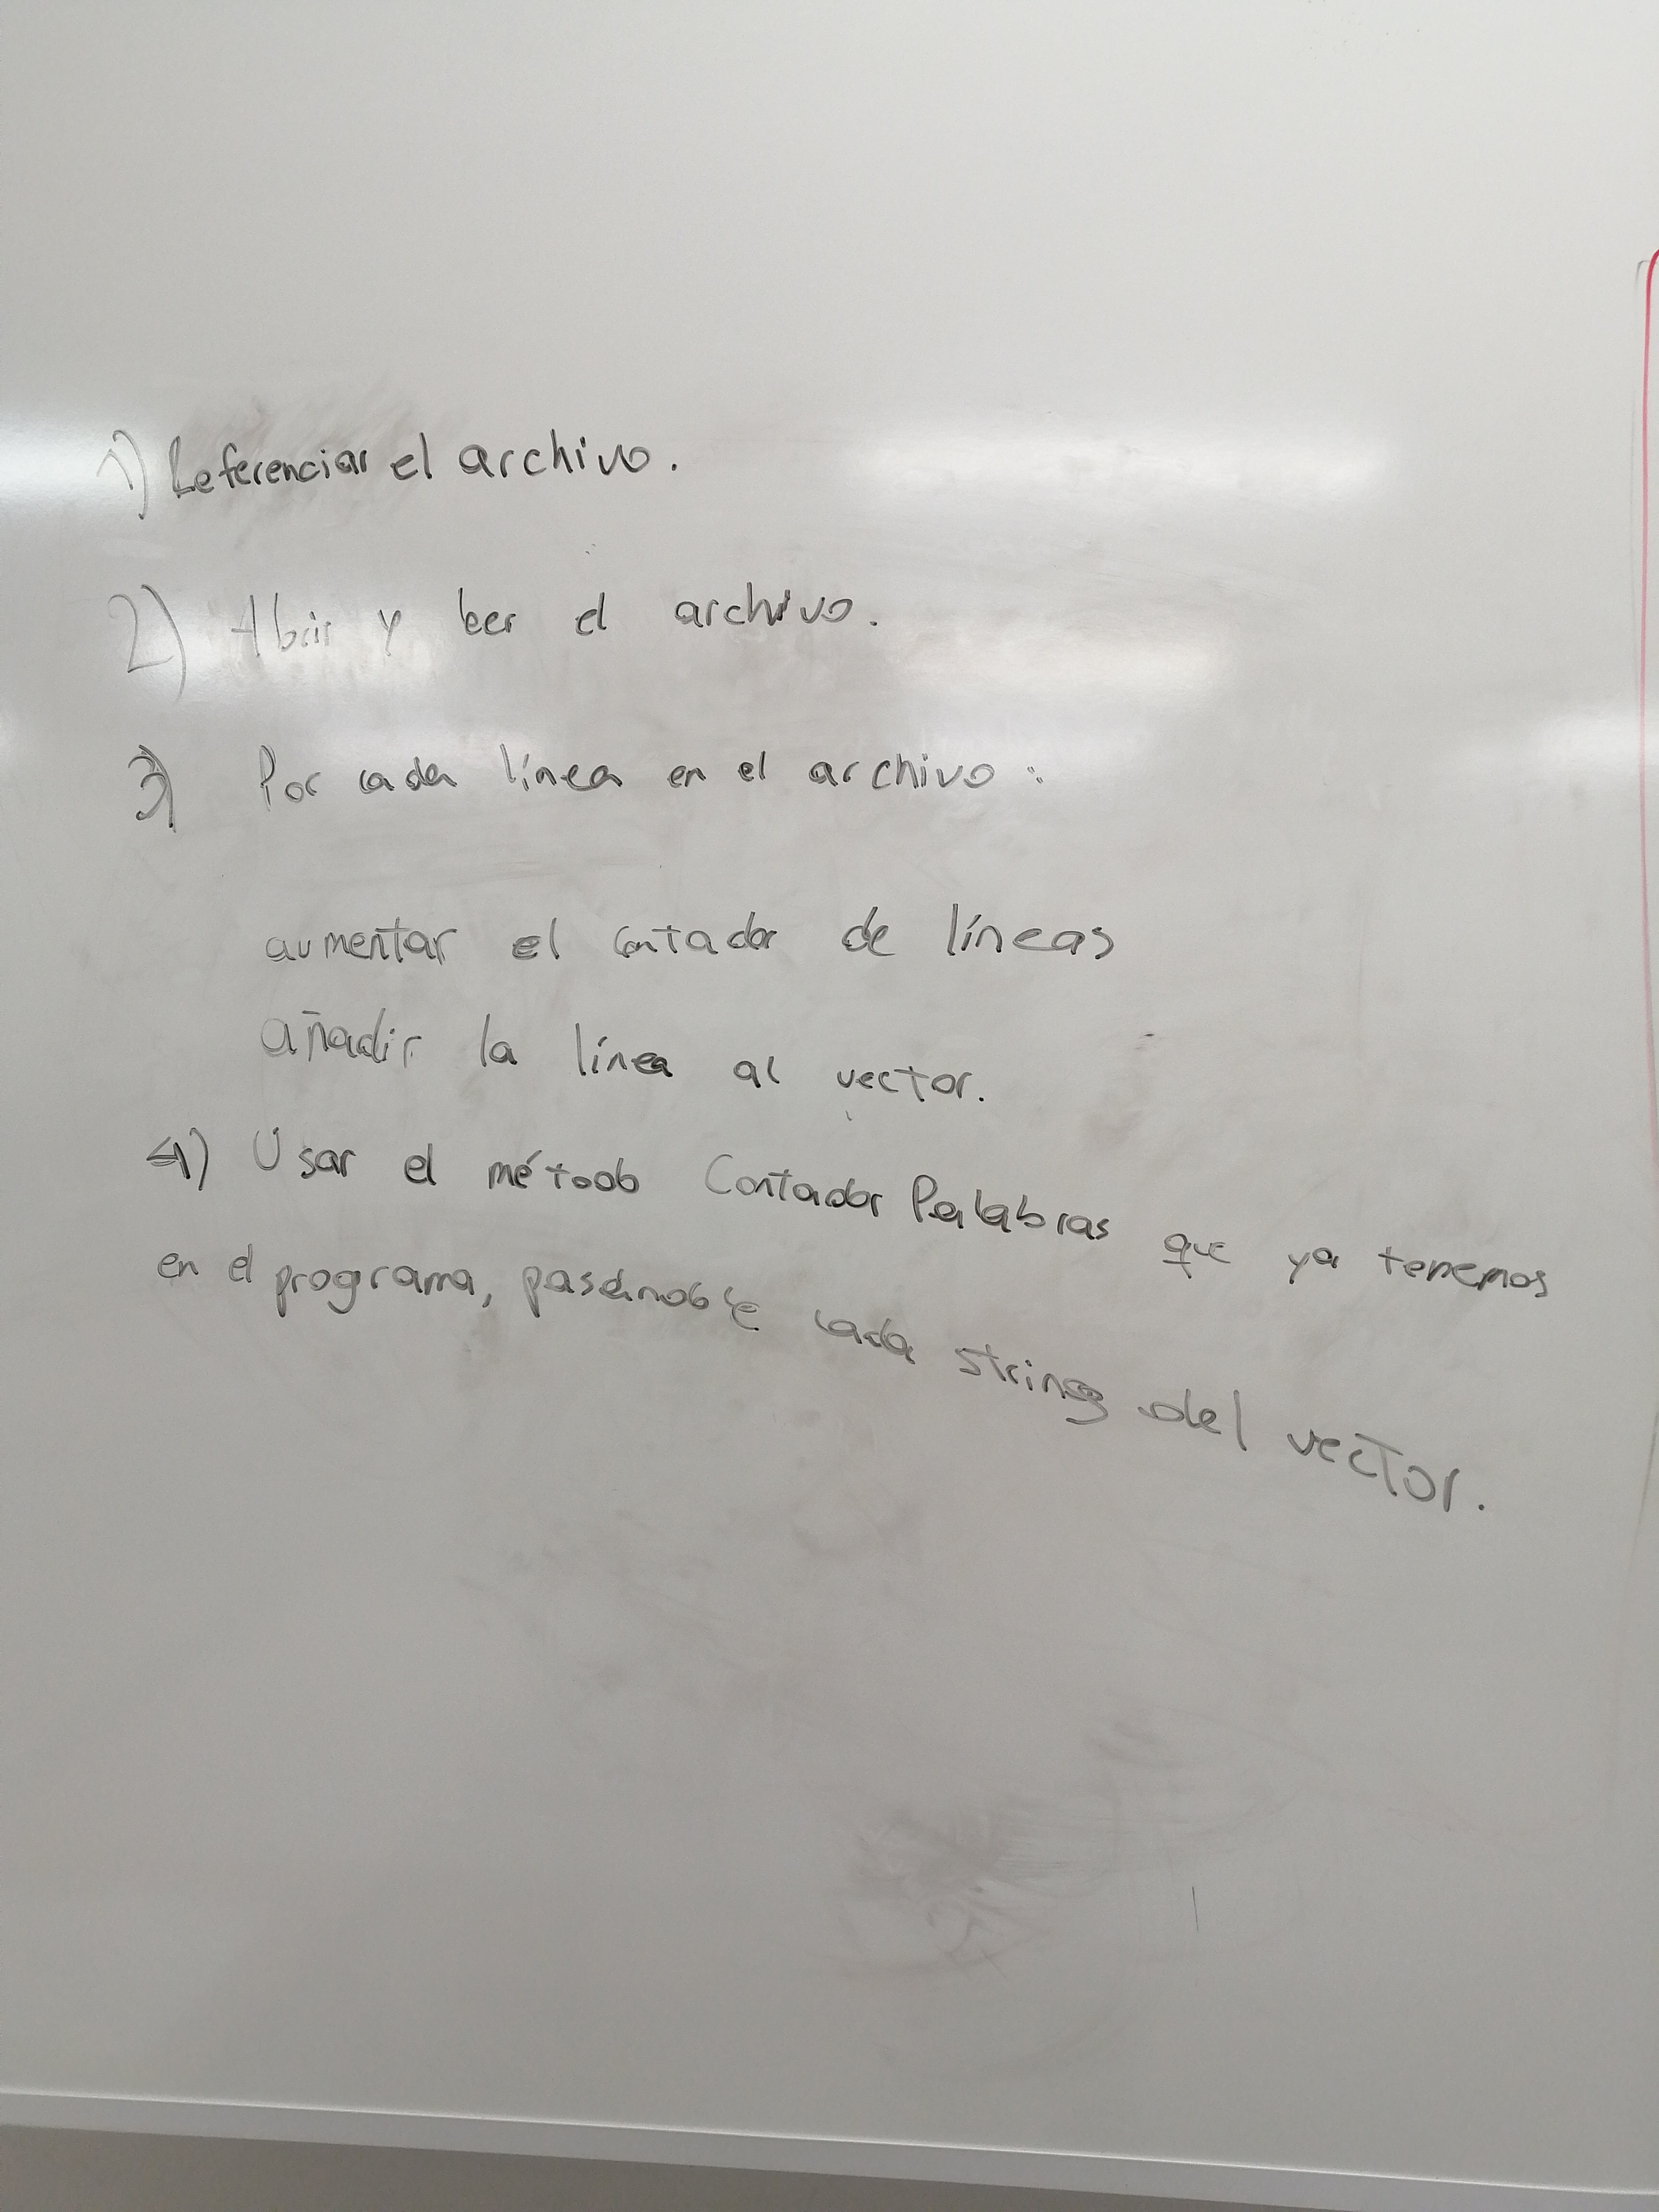 1) Referenciar el archivo.
2) Abrir y leer el archivo.
3) Por cada línea en el archivo:
aumentar el contador de líneas
añadir la línea al vector.
4) Usar el método Contador Palabras que ya tenemos
en el programa, pasándole cada string del vector.